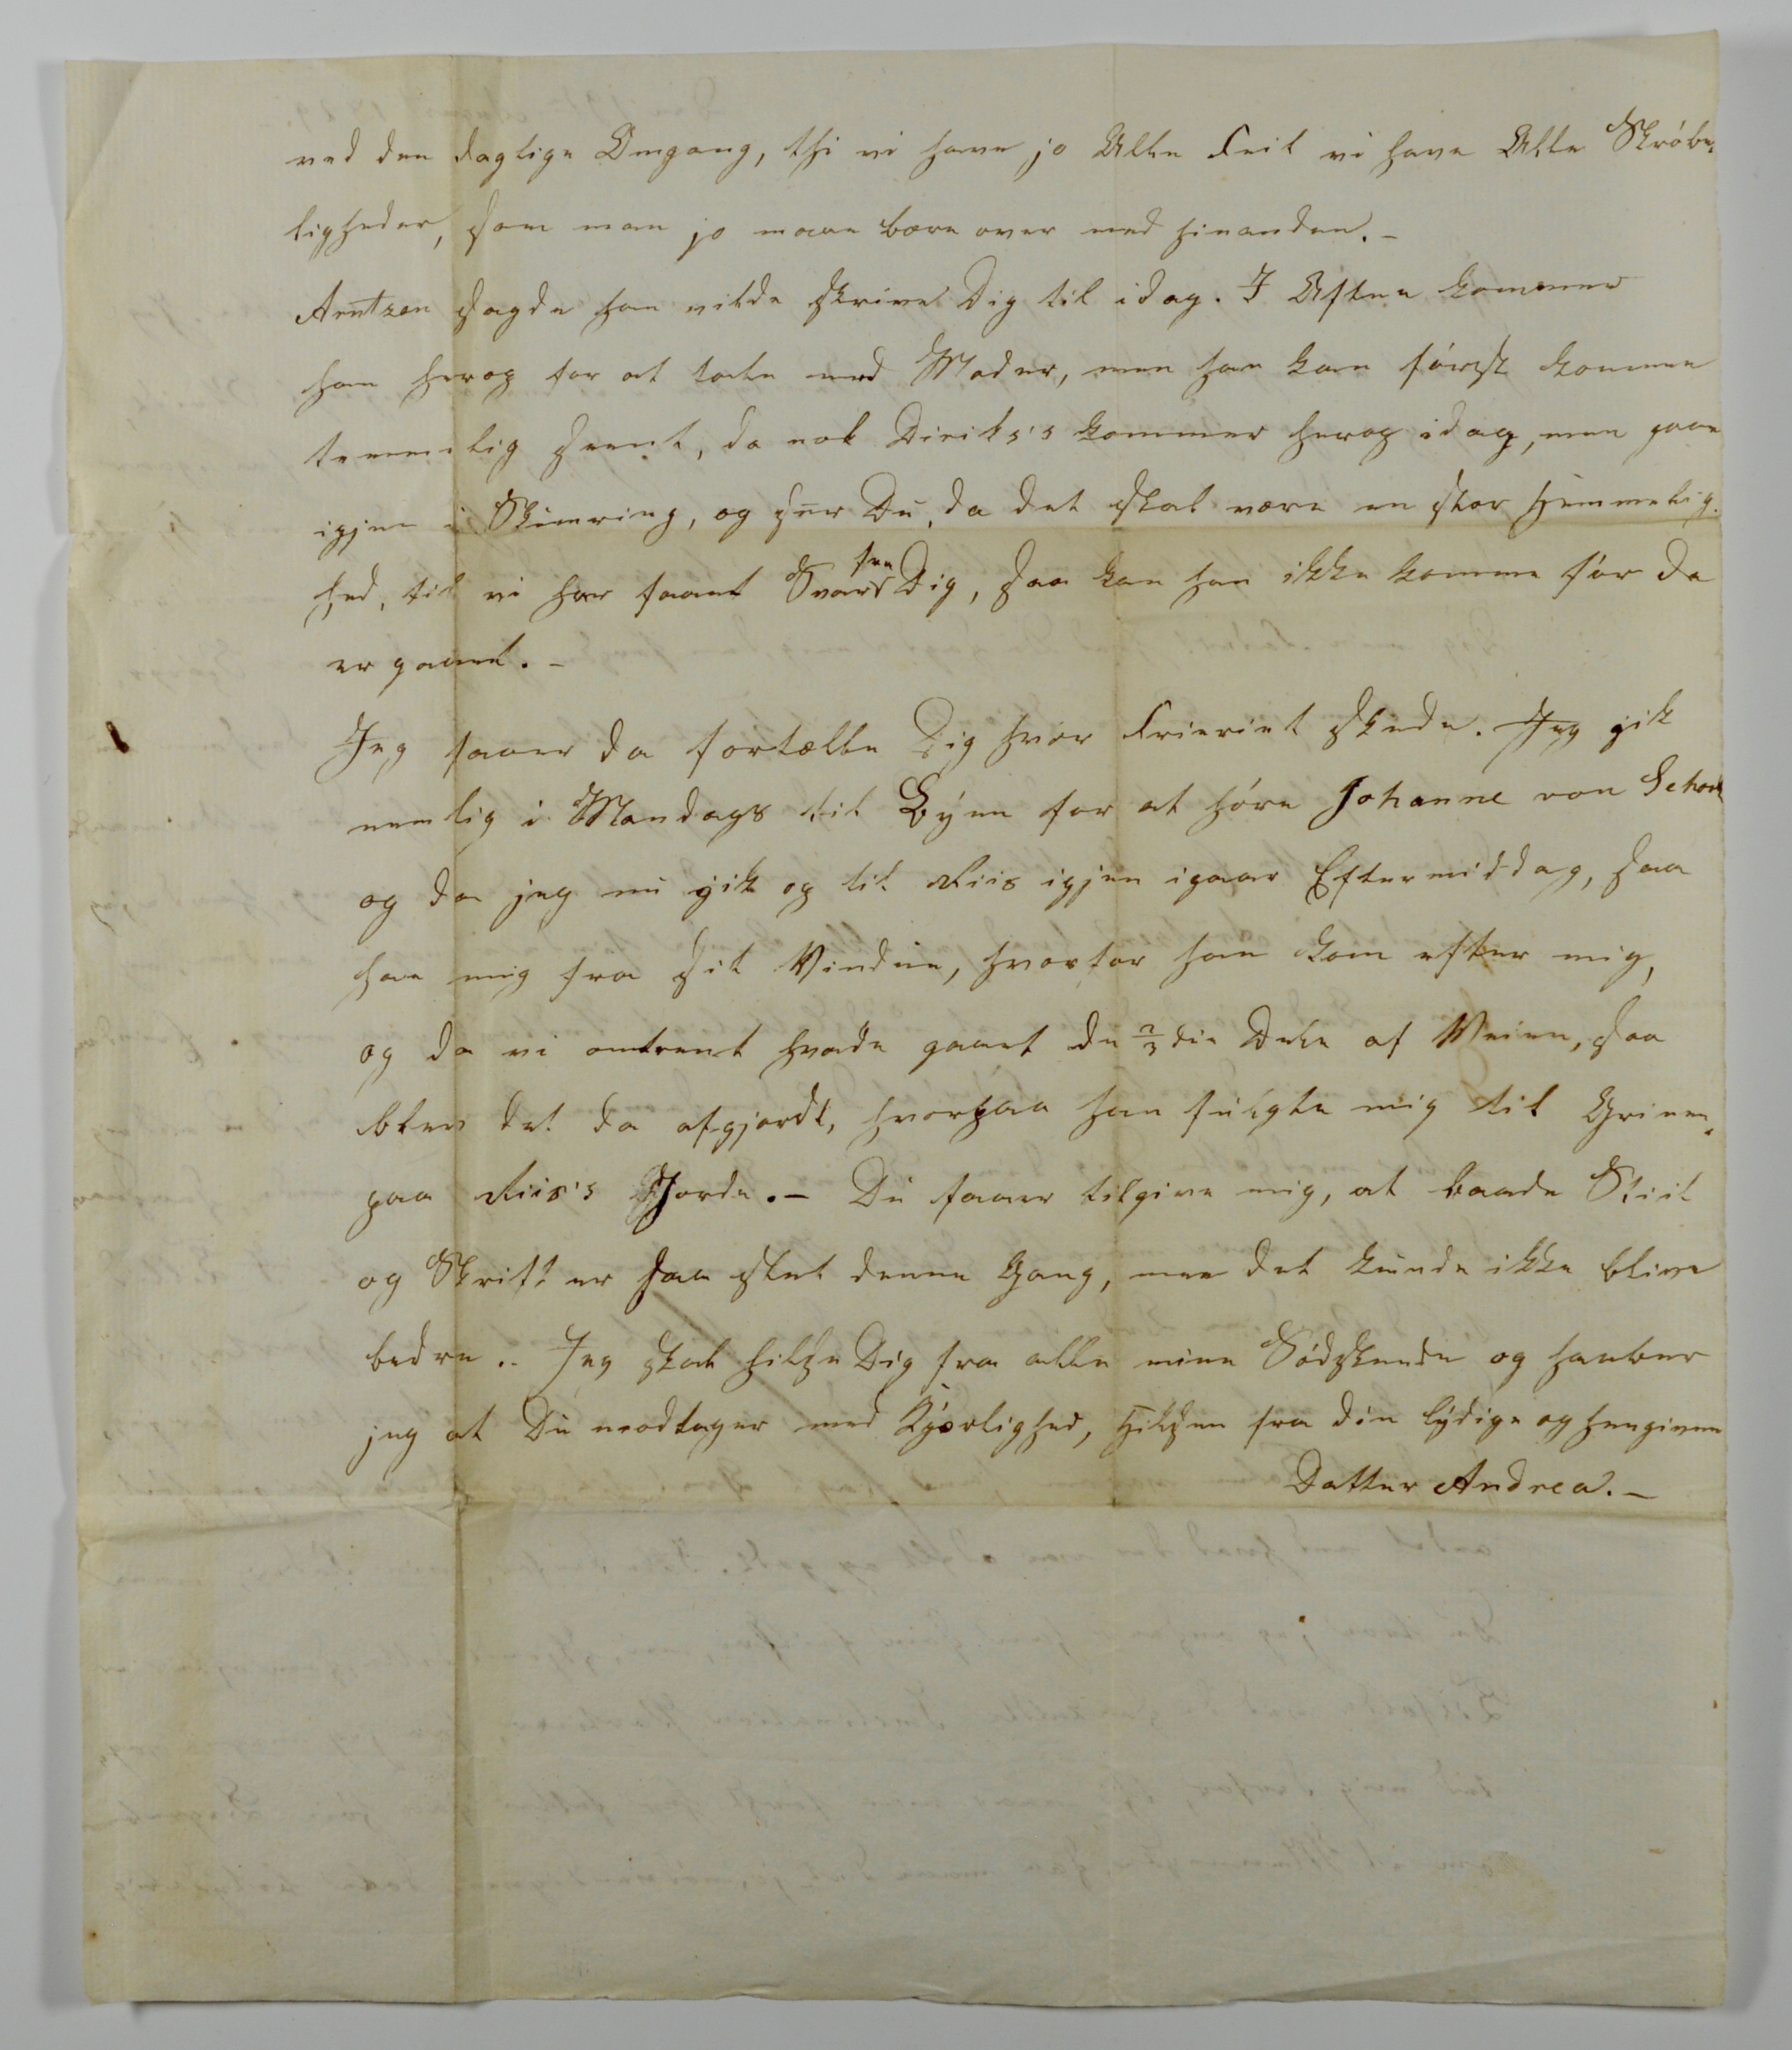 ved den daglige Omgang, thi vi have jo Alle Feil vi have Alle Skröbe-
ligheder, som man jo maae bære over med hinanden. –
Arntzen sagde han vilde skrive Dig til idag. I Aften kommer
han herop for at tale med Moder, men han kan först komme
temmelig seent, da nok Diriks's kommer herop idag, men gaae
igjen i Skumring, og seer Du, da det skal være en stor Hemmelig-
hed, til vi har faaet Svar fra Dig, saa kan han ikke komme för de
er gaaet. –
Jeg faaer da fortælle Dig hvor Frieriet skede. Jeg gik
nemlig i Mandags til Byen for at höre Johanne von Schoul
og da jeg nu gik op til Riis igjen igaar Eftermiddag, saa
han mig fra sit Vindue, hvorfor han kom efter mig,
og da vi omtrent havde gaaet de 2/3die Dele af Veien, saa
blev det da afgjordt, hvorpaa han fulgte mig til Grinen,
paa Riis's Jorde. – Du faaer tilgive mig, at baade Stiil
og Skrift er saa slet denne Gang, men det kunde ikke blive
bedre. – Jeg skal hilse Dig fra alle mine Södskende og haaber
jeg at Du modtager med Kjærlighed, Hilsen fra din lydige og hengivne
Datter Andrea. –